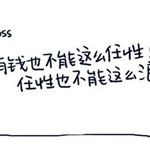 oss
有钱也不能这么任性!
任性也不能这么浪